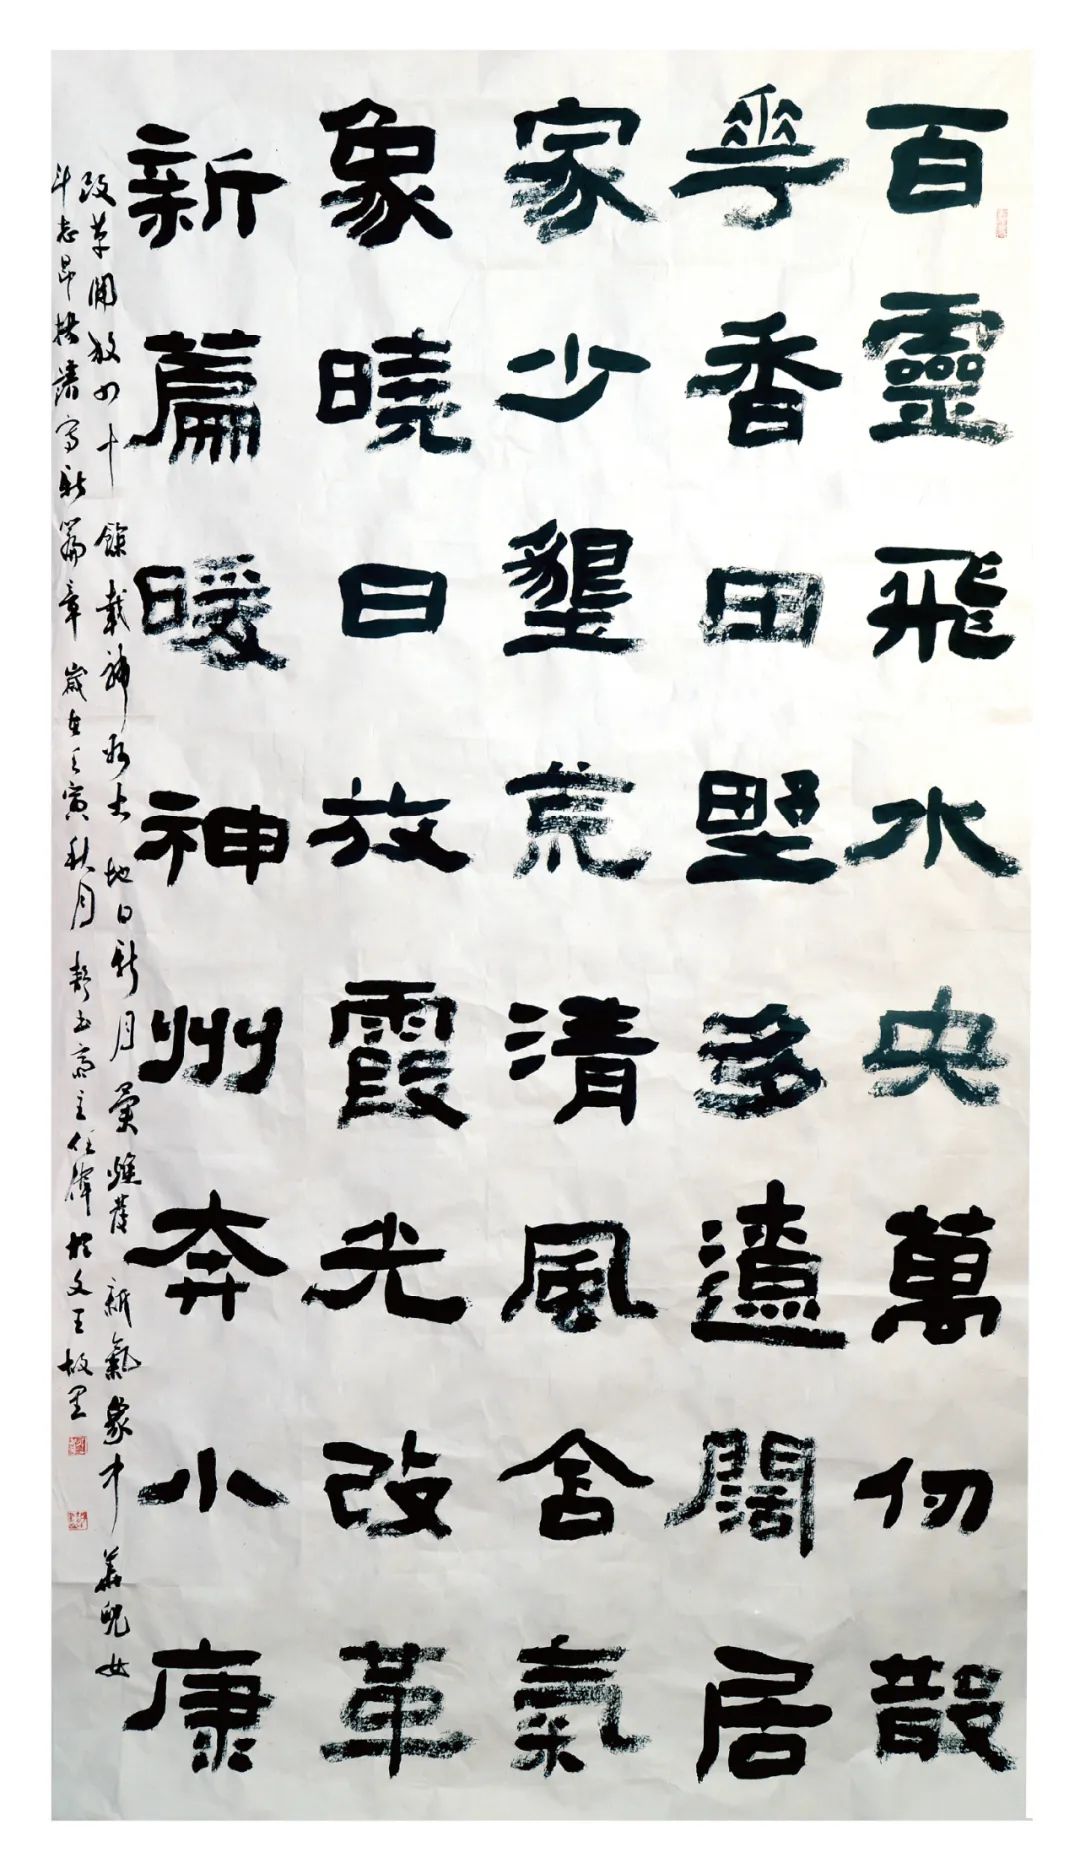 百靈飛水央萬仞散
華香田野多遠闊居
家少墾荒清風舍氣
象曉日放霞光改革
新篇暖神州奔小康
改革開放四十餘載神州大地日新月異煥發新氣象中華兒女
斗志昂揚譜寫新篇章歲在壬寅秋月 齋主任偉於文王故里